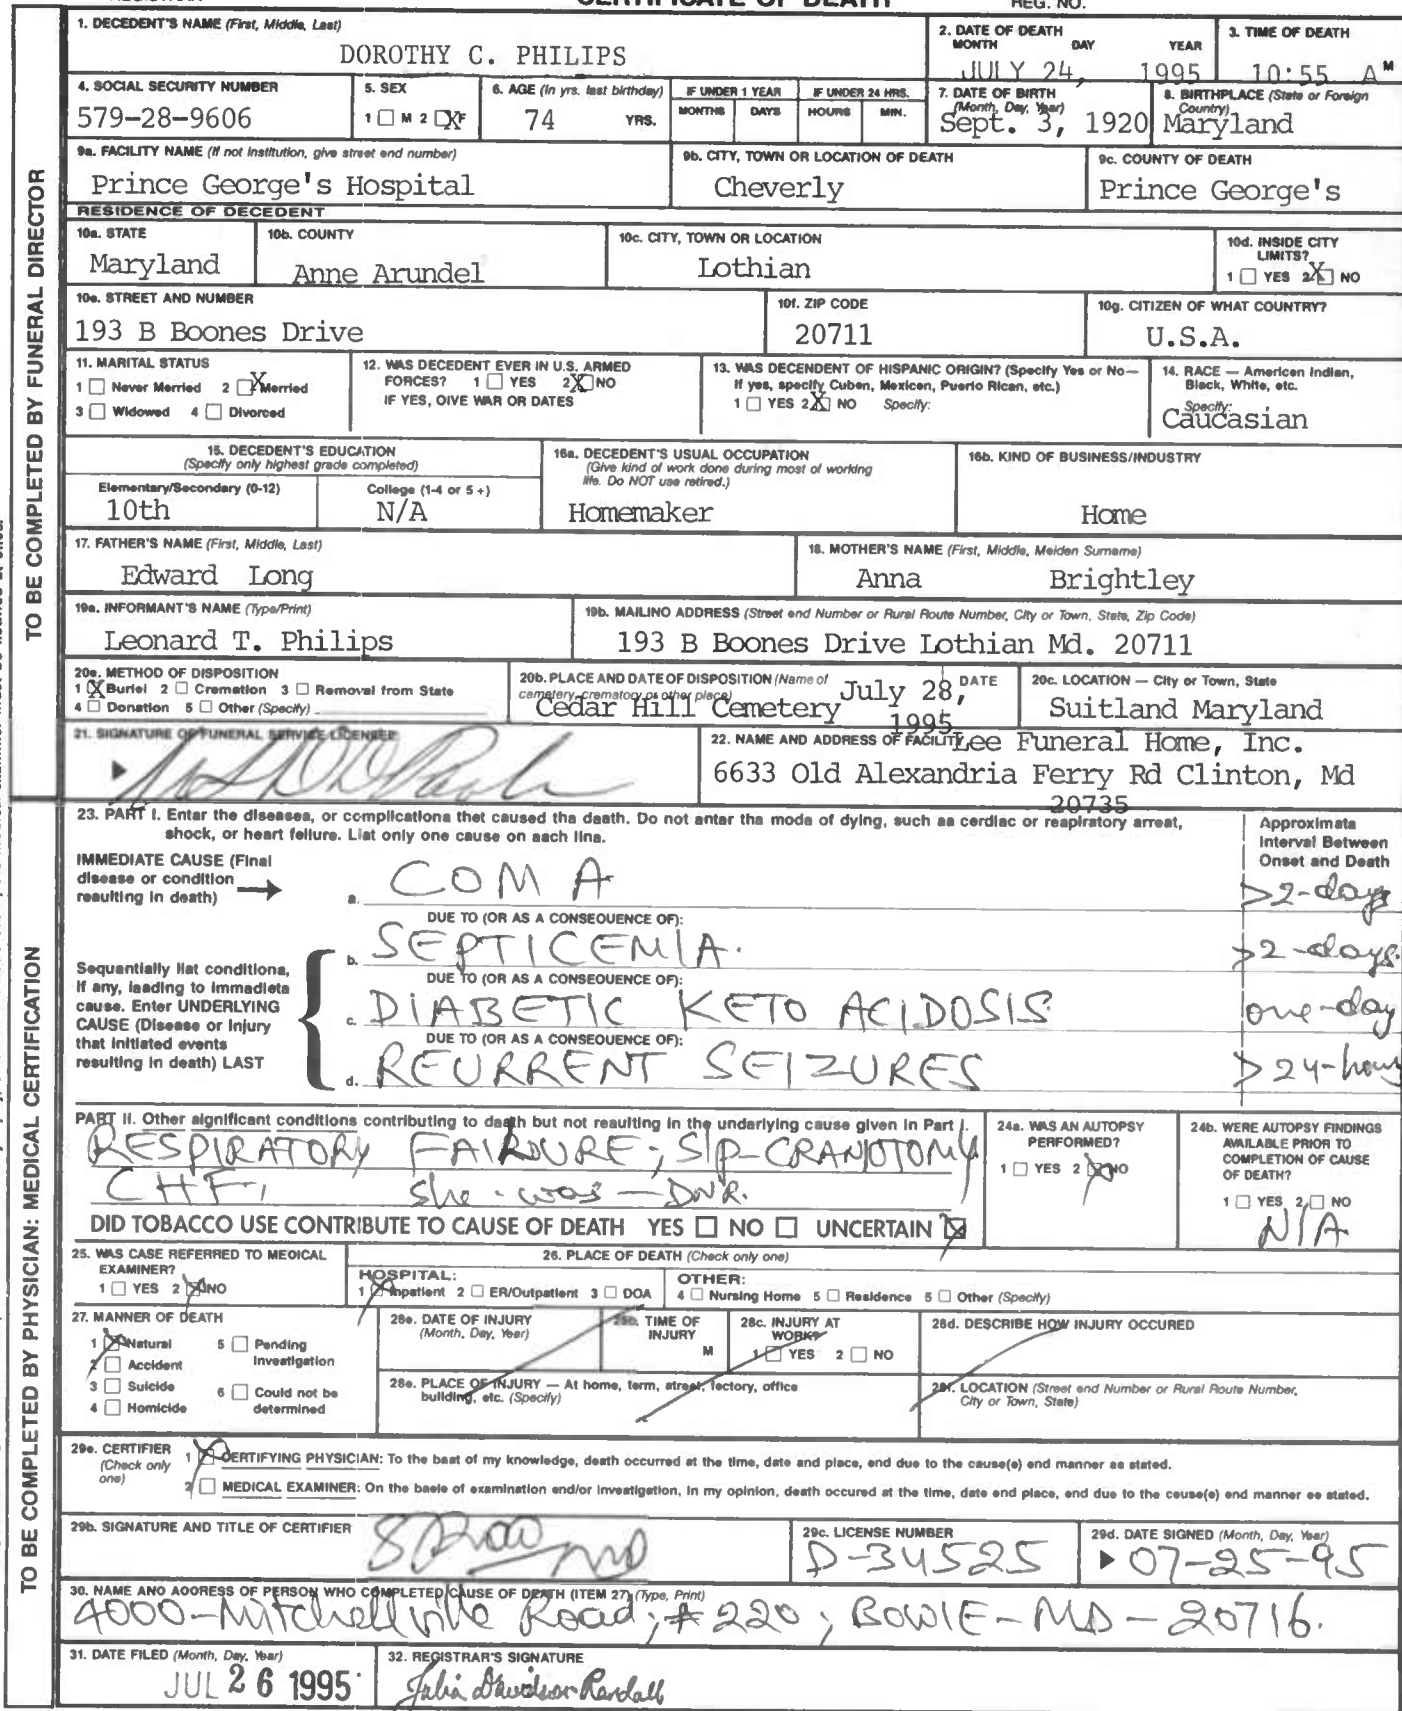 CERTIFICATE OF DEATH
REG. NO.
1. DECEDENT'S NAME (First, Middle, Last)
DOROTHY C. PHILIPS
2. DATE OF DEATH
MONTH DAY YEAR
JULY 24, 1995
3. TIME OF DEATH
10:55 A M
4. SOCIAL SECURITY NUMBER
579-28-9606
5. SEX
1 ☐ M 2 ☒ F
6. AGE (In yrs. last birthday)
74 YRS.
IF UNDER 1 YEAR
MONTHS DAYS
IF UNDER 24 HRS.
HOURS MIN.
7. DATE OF BIRTH
(Month, Day, Year)
Sept. 3, 1920
8. BIRTHPLACE (State or Foreign
Country)
Maryland
9a. FACILITY NAME (If not institution, give street end number)
Prince George's Hospital
9b. CITY, TOWN OR LOCATION OF DEATH
Cheverly
9c. COUNTY OF DEATH
Prince George's
RESIDENCE OF DECEDENT
10a. STATE
Maryland
10b. COUNTY
Anne Arundel
10c. CITY, TOWN OR LOCATION
Lothian
10d. INSIDE CITY
LIMITS?
1 ☐ YES 2 ☒ NO
10e. STREET AND NUMBER
193 B Boones Drive
10f. ZIP CODE
20711
10g. CITIZEN OF WHAT COUNTRY?
U.S.A.
11. MARITAL STATUS
1 ☐ Never Merried 2 ☒ Merried
3 ☐ Widowed 4 ☐ Divorced
12. WAS DECEDENT EVER IN U.S. ARMED
FORCES? 1 ☐ YES 2 ☒ NO
IF YES, OIVE WAR OR DATES
13. WAS DECENDENT OF HISPANIC ORIGIN? (Specify Yes or No—
If yes, specify Cuben, Mexicen, Puerto Rican, etc.)
1 ☐ YES 2 ☒ NO Specify:
14. RACE — Americen Indlan,
Bleck, White, etc.
Specify:
Caucasian
15. DECEDENT'S EDUCATION
(Specify only highest grade completed)
Elementery/Secondary (0-12)
10th
College (1-4 or 5 +)
N/A
16a. DECEDENT'S USUAL OCCUPATION
(Give kind of work done during most of working
life. Do NOT use retired.)
Homemaker
16b. KIND OF BUSINESS/INDUSTRY
Home
17. FATHER'S NAME (First, Middle, Last)
Edward Long
18. MOTHER'S NAME (First, Middle, Meiden Surname)
Anna Brightley
19a. INFORMANT'S NAME (Type/Print)
Leonard T. Philips
19b. MAILINO ADDRESS (Street end Number or Rural Route Number, City or Town, State, Zip Code)
193 B Boones Drive Lothian Md. 20711
20e. METHOD OF DISPOSITION
1 ☒ Buriel 2 ☐ Cremation 3 ☐ Removal from State
4 ☐ Donation 5 ☐ Other (Specify)
20b. PLACE AND DATE OF DISPOSITION (Name of DATE
cemetery, crematory or other place)
Cedar Hill Cemetery July 28,
1995
20c. LOCATION — City or Town, State
Suitland Maryland
21. SIGNATURE OF FUNERAL SERVICE LICENSEE
22. NAME AND ADDRESS OF FACILITY
Lee Funeral Home, Inc.
6633 Old Alexandria Ferry Rd Clinton, Md
20735
TO BE COMPLETED BY FUNERAL DIRECTOR
23. PART I. Enter the diseases, or complications thet caused tha daath. Do not antar tha moda of dying, such aa cerdlac or reapiratory arreat,
shock, or heart fellure. Liat only one cause on aach lina.
Approximata
Interval Between
Onset and Death
IMMEDIATE CAUSE (Final
disease or condition
reaulting in death)
a. COMA
>2-days
DUE TO (OR AS A CONSEQUENCE OF):
b. SEPTICEMIA.
>2-days.
Sequantially liat conditiona,
if any, laading to immadieta
cause. Enter UNDERLYING
CAUSE (Disease or Injury
that initiated events
resulting in death) LAST
DUE TO (OR AS A CONSEQUENCE OF):
c. DIABETIC KETO ACIDOSIS
one-day
DUE TO (OR AS A CONSEQUENCE OF):
d. REURRENT SEIZURES
>24-hours
PART II. Other aignificant conditions contributing to daath but not reaulting in the underlying cause given in Part I.
RESPIRATORY FAILURE; S/P-CRANIOTOMY
CHF, she-was-DNR.
24a. WAS AN AUTOPSY
PERFORMED?
1 ☐ YES 2 ☒ NO
24b. WERE AUTOPSY FINDINGS
AVAILABLE PRIOR TO
COMPLETION OF CAUSE
OF DEATH?
1 ☐ YES 2 ☐ NO
N/A
DID TOBACCO USE CONTRIBUTE TO CAUSE OF DEATH YES ☐ NO ☐ UNCERTAIN ☒
25. WAS CASE REFERRED TO MEOICAL
EXAMINER?
1 ☐ YES 2 ☒ NO
26. PLACE OF DEATH (Check only one)
HOSPITAL:
1 ☒ Inpatient 2 ☐ ER/Outpatient 3 ☐ DOA
OTHER:
4 ☐ Nursing Home 5 ☐ Residence 5 ☐ Other (Specify)
27. MANNER OF DEATH
1 ☒ Natural 5 ☐ Pending
2 ☐ Accident Investigation
3 ☐ Suicide 6 ☐ Could not be
4 ☐ Homicide determined
28e. DATE OF INJURY
(Month, Day, Year)
28b. TIME OF
INJURY
M
28c. INJURY AT
WORK?
1 ☐ YES 2 ☐ NO
28d. DESCRIBE HOW INJURY OCCURED
28e. PLACE OF INJURY — At home, term, atreat, fectory, office
building, etc. (Specify)
28f. LOCATION (Street end Number or Rural Route Number,
City or Town, State)
29e. CERTIFIER
(Check only
one)
1 ☒ CERTIFYING PHYSICIAN: To the baat of my knowledge, death occurred at the time, date and place, end due to the cause(e) end manner aa stated.
2 ☐ MEDICAL EXAMINER: On the baele of examination end/or Invealigation, In my opinion, death occured at the time, date end place, end due to the ceuse(e) end manner ee stated.
29b. SIGNATURE AND TITLE OF CERTIFIER
MD
29c. LICENSE NUMBER
D-34525
29d. DATE SIGNED (Month, Day, Year)
07-25-95
30. NAME ANO AOORESS OF PERSON WHO COMPLETED CAUSE OF DEATH (ITEM 27) (Type, Print)
4000-Mitchellville Road; #220; BOWIE-MD-20716.
31. DATE FILED (Month, Day, Year)
JUL 26 1995
32. REGISTRAR'S SIGNATURE
Julia Davidson-Randall
TO BE COMPLETED BY PHYSICIAN: MEDICAL CERTIFICATION